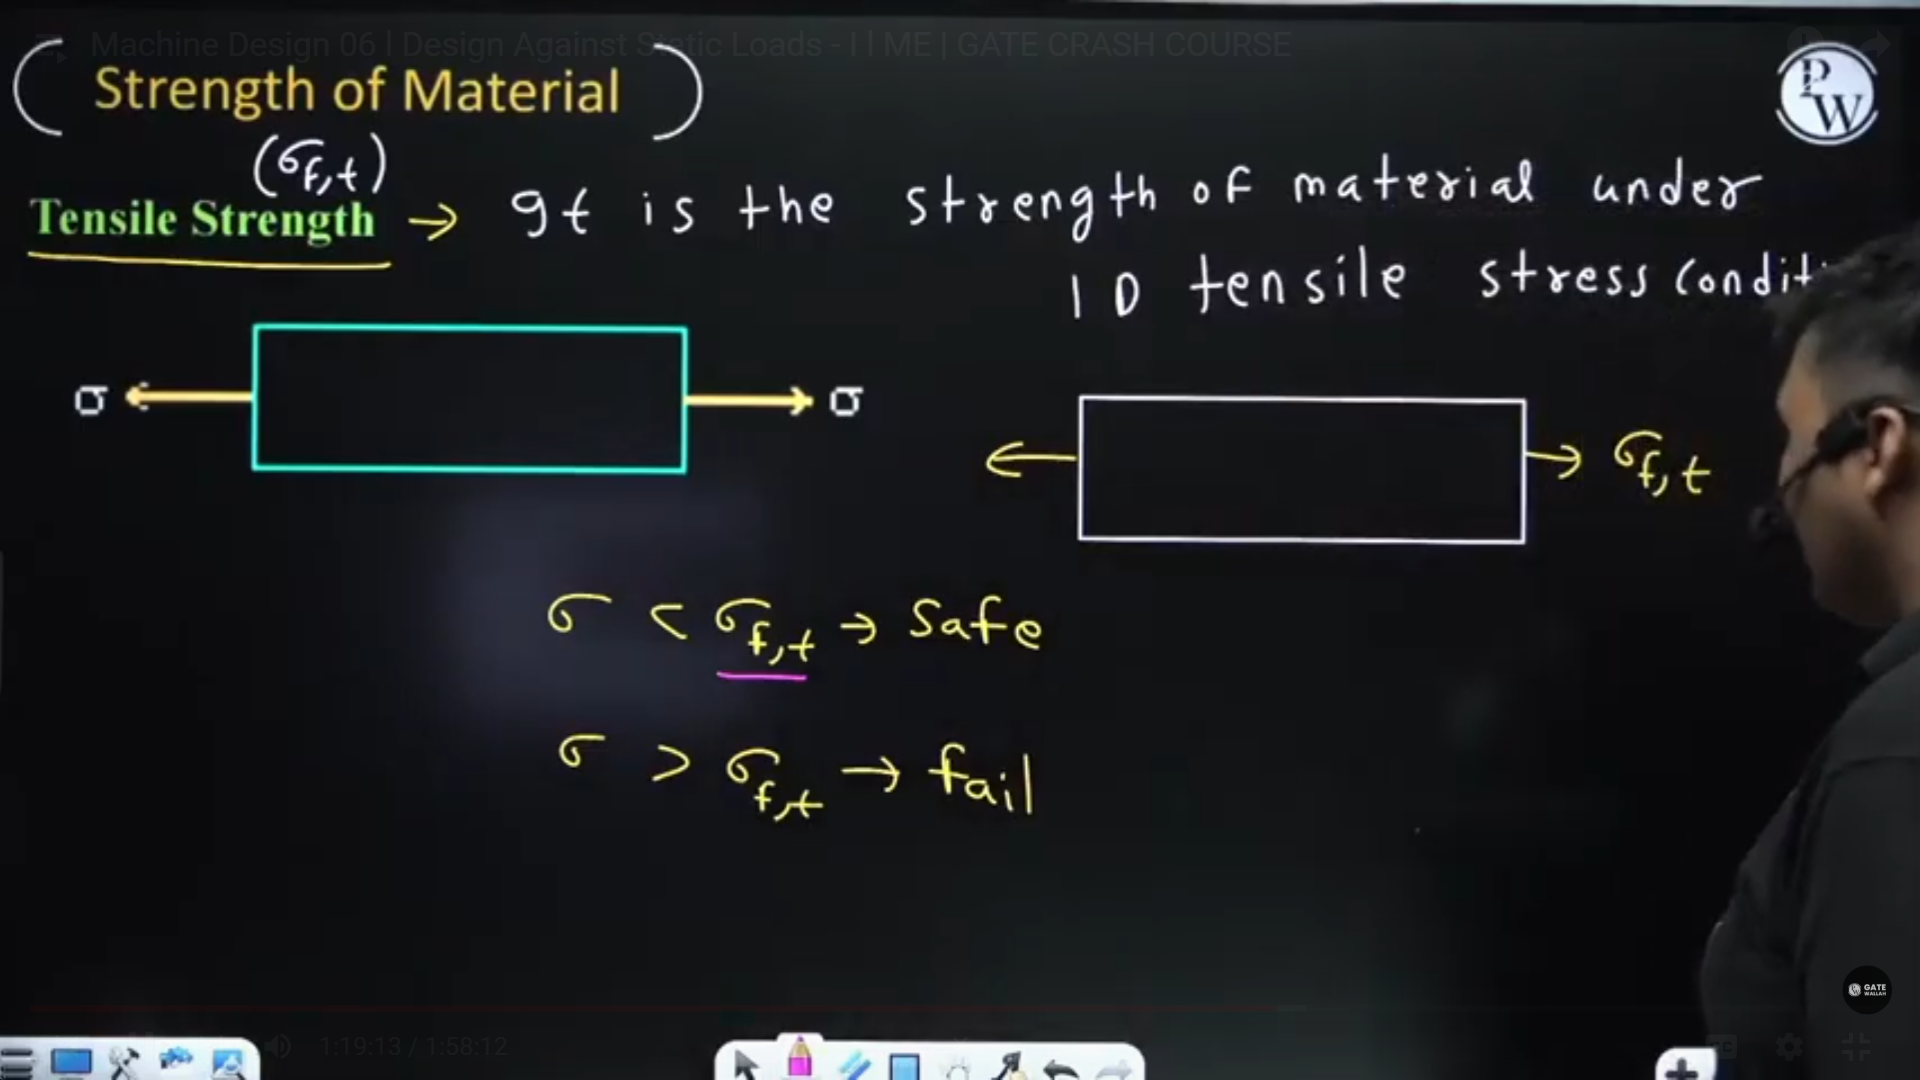 Machine Design 06 | Design Against Static Loads - I | ME | GATE CRASH COURSE
Strength of Material
PW
(σf,t)
Tensile Strength → It is the strength of material under
1D tensile stress conditi
σ σ
σf,t
σ < σf,t → Safe
σ > σf,t → fail
GATE
WALLAH
1:19:13 / 1:58:12